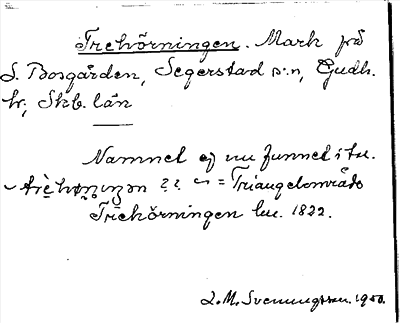 Trehörningen. Mark på
S. Bosgården, Segerstad s:n, Gudh.
hr; Skb. län
Namnet ej nu funnet i tr.
= Triangelområde
Trehörningen lm. 1822.
L.M. Svenungsson. 1950.